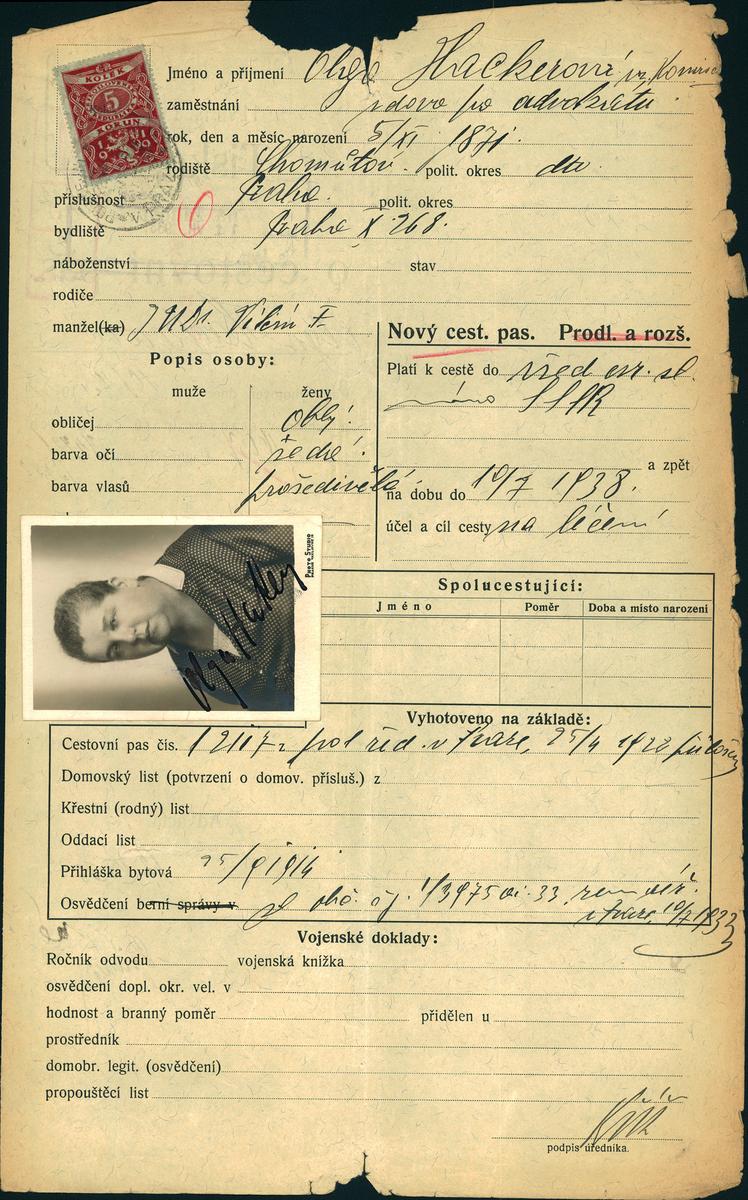 KOLEK
5
KORUN
Jméno a příjmení Olga Hackerová
zaměstnání vdova po advokátu.
rok, den a měsíc narození 5/XI 1871.
rodiště Chomútov. polit. okres dto
příslušnost Praha. polit. okres
bydliště Praha X 268.
náboženství stav
rodiče
manžel(ka) JUDr. Vilém
Nový cest. pas. Prodl. a rozš.
Popis osoby:
muže ženy
obličej oblý.
barva očí šedé.
barva vlasů prošedivělá
Platí k cestě do všed evr. st.
mimo SSSR
a zpět
na dobu do 10/7 1938.
účel a cíl cesty na léčení
PHOTO STUDIO
Olga Hacker
Spolucestující:
Jméno Poměr Doba a místo narození
Vyhotoveno na základě:
Cestovní pas čís. pol. řed. v Praze, 25/4 1928
Domovský list (potvrzení o domov. přísluš.) z
Křestní (rodný) list
Oddací list
Přihláška bytová
Osvědčení berní správy v
v Praze, 10/7 1933
Vojenské doklady:
Ročník odvodu vojenská knížka
osvědčení dopl. okr. vel. v
hodnost a branný poměr přidělen u
prostředník
domobr. legit. (osvědčení)
propouštěcí list
podpis úředníka.